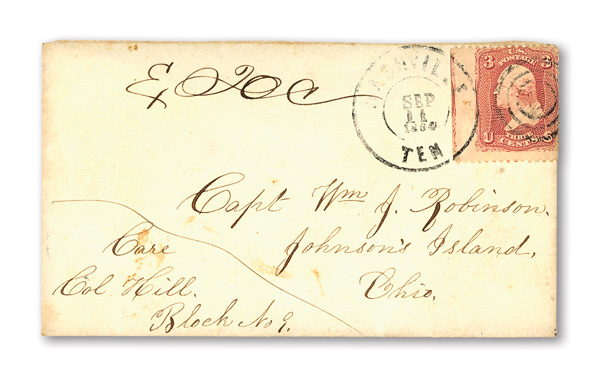 NASHVILLE
SEP
11
1864
TEN
U.S.
POSTAGE
3 3
U THREE S
CENTS
Capt Wm J. Robinson.
Johnson's Island,
Ohio.
Care
Col. Hill.
Block No 9.